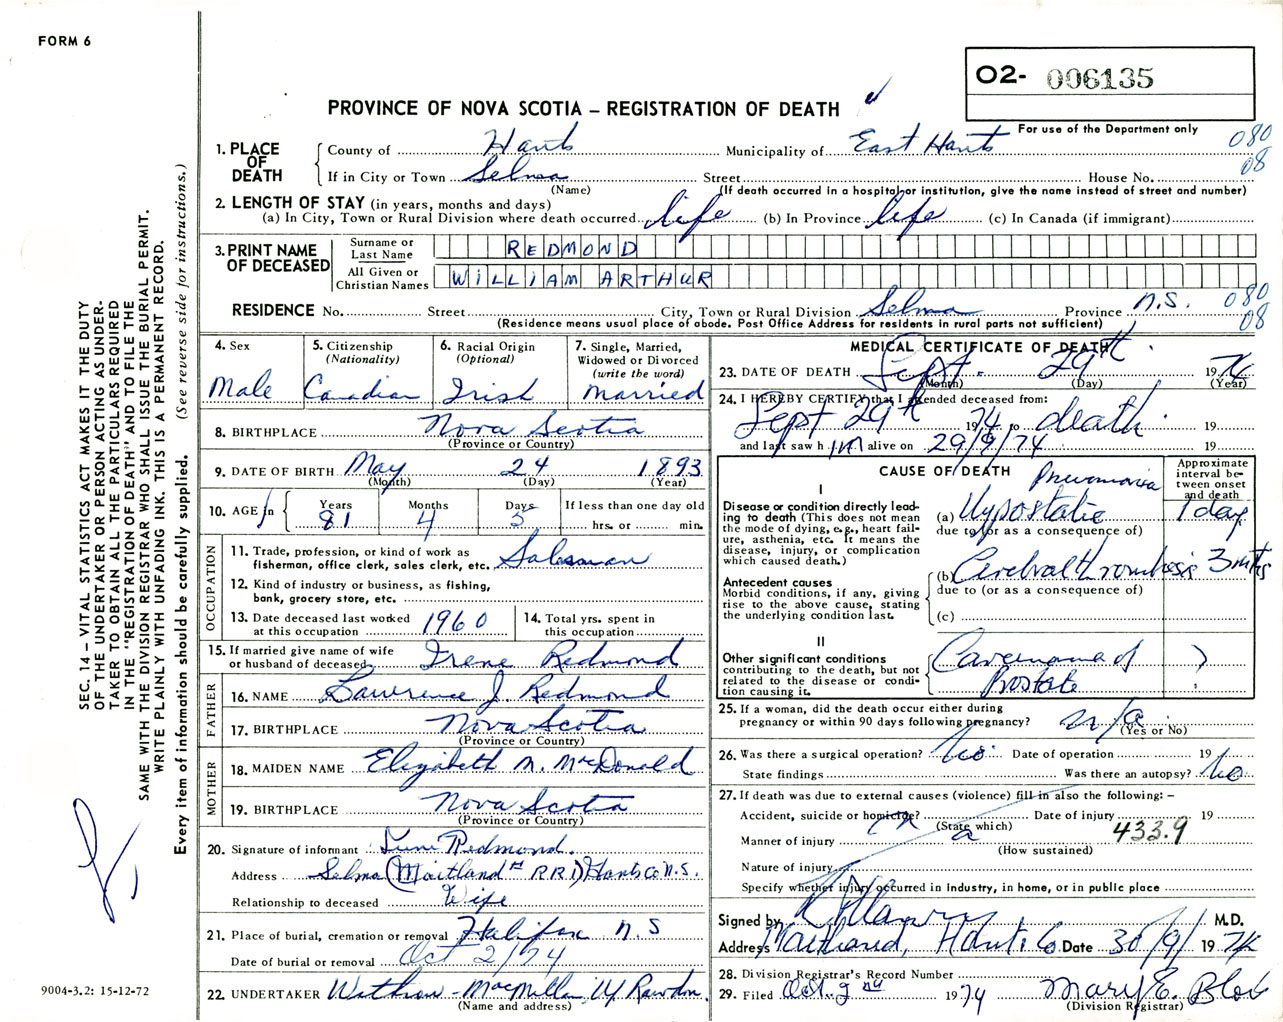 FORM 6
O2- 006135
PROVINCE OF NOVA SCOTIA – REGISTRATION OF DEATH
For use of the Department only
1. PLACE OF DEATH County of Hants Municipality of East Hants 080
If in City or Town Selma Street House No. 08
(Name) (If death occurred in a hospital or institution, give the name instead of street and number)
2. LENGTH OF STAY (in years, months and days)
(a) In City, Town or Rural Division where death occurred life (b) In Province life (c) In Canada (if immigrant)
3. PRINT NAME OF DECEASED Surname or Last Name REDMOND
All Given or Christian Names WILLIAM ARTHUR
RESIDENCE No. Street City, Town or Rural Division Selma Province N.S. 080
(Residence means usual place of abode. Post Office Address for residents in rural parts not sufficient) 08
4. Sex Male
5. Citizenship (Nationality) Canadian
6. Racial Origin (Optional) Irish
7. Single, Married, Widowed or Divorced (write the word) Married
8. BIRTHPLACE Nova Scotia
(Province or Country)
9. DATE OF BIRTH May 24 1893
(Month) (Day) (Year)
10. AGE in Years 81 Months 4 Days 5 If less than one day old
hrs. or min.
OCCUPATION
11. Trade, profession, or kind of work as fisherman, office clerk, sales clerk, etc. Salesman
12. Kind of industry or business, as fishing, bank, grocery store, etc.
13. Date deceased last worked at this occupation 1960
14. Total yrs. spent in this occupation
15. If married give name of wife or husband of deceased Irene Redmond
FATHER
16. NAME Lawrence J. Redmond
17. BIRTHPLACE Nova Scotia
(Province or Country)
MOTHER
18. MAIDEN NAME Elizabeth M. McDonald
19. BIRTHPLACE Nova Scotia
(Province or Country)
20. Signature of informant Redmond.
Address Selma (Maitland # RR1) Hants Co N.S.
Relationship to deceased Wife
21. Place of burial, cremation or removal Halifax N.S
Date of burial or removal Oct 2/74
22. UNDERTAKER MacMillan Rawdon.
(Name and address)
MEDICAL CERTIFICATE OF DEATH
23. DATE OF DEATH Sept. 29th. 1974
(Month) (Day) (Year)
24. I HEREBY CERTIFY that I attended deceased from:
Sept 29th 1974 to death 19
and last saw him alive on 29/9/74 19
CAUSE OF DEATH
Approximate interval between onset and death
I
Disease or condition directly leading to death (This does not mean the mode of dying, e.g., heart failure, asthenia, etc. It means the disease, injury, or complication which caused death.)
(a) Hypostatic Pneumonia 1 day
due to (or as a consequence of)
(b) Cerebral thrombosis 3 mths
due to (or as a consequence of)
(c)
Antecedent causes
Morbid conditions, if any, giving rise to the above cause, stating the underlying condition last.
II
Other significant conditions contributing to the death, but not related to the disease or condition causing it.
Carcinoma of Prostate ?
25. If a woman, did the death occur either during pregnancy or within 90 days following pregnancy? n/a
(Yes or No)
26. Was there a surgical operation? No. Date of operation 19
State findings Was there an autopsy? No
27. If death was due to external causes (violence) fill in also the following: –
Accident, suicide or homicide? Date of injury 19
(State which)
Manner of injury n/a 433.9
(How sustained)
Nature of injury
Specify whether injury occurred in Industry, in home, or in public place
Signed by M.D.
Address Maitland, Hants Co Date 30/9/ 1974
28. Division Registrar's Record Number
29. Filed Oct. 2nd 1974 Mary E.
(Division Registrar)
SEC. 14 – VITAL STATISTICS ACT MAKES IT THE DUTY
OF THE UNDERTAKER OR PERSON ACTING AS UNDER-
TAKER TO OBTAIN ALL THE PARTICULARS REQUIRED
IN THE "REGISTRATION OF DEATH" AND TO FILE THE
SAME WITH THE DIVISION REGISTRAR WHO SHALL ISSUE THE BURIAL PERMIT.
WRITE PLAINLY WITH UNFADING INK. THIS IS A PERMANENT RECORD.
Every item of information should be carefully supplied. (See reverse side for instructions.)
9004-3.2: 15-12-72